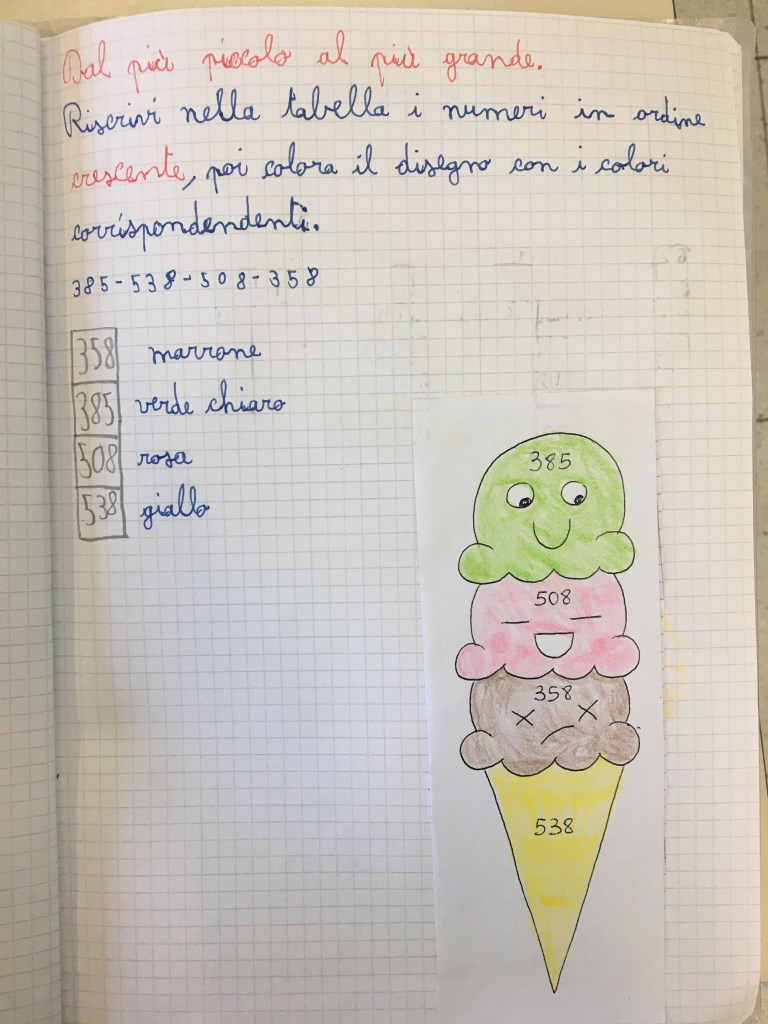 Dal più piccolo al più grande.
Riscrivi nella tabella i numeri in ordine
crescente, poi colora il disegno con i colori
corrispondendenti.
385-538-508-358
358 marrone
385 verde chiaro
508 rosa
538 giallo
385
508
358
538